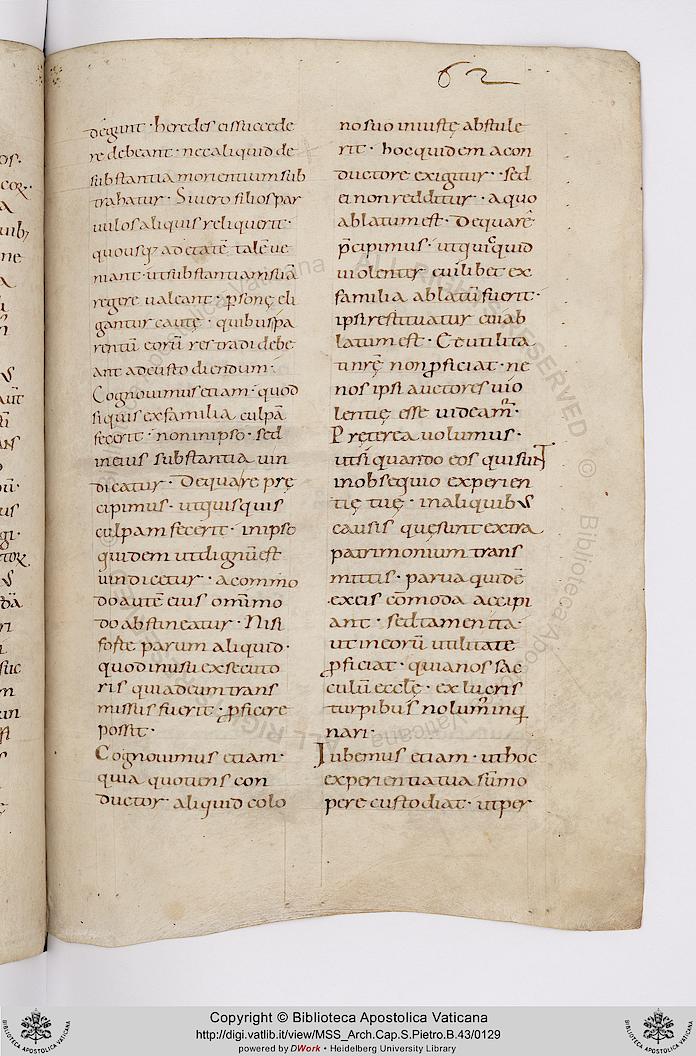 62
degunt · heredes ei succede
re debeant · nec aliquid de
substantia morientium sub
trahatur · Si vero filios par
vulos aliquis reliquerit ·
quousq; ad etatē talē ve
niant · ut substantiam suā
regere valeant · psonę eli
gantur cautę · quibus pa
rentū eorū res tradi debe
ant ad custodiendum ·
Cognovimus etiam · quod
si quis ex familia culpā
fecerit · non in ipso · sed
in eius substantia vin
dicatur · De qua re prę
cipimus · ut quisquis
culpam fecerit · in ipso
quidem ut dignū est
vindicetur · a commo
do autē eius omnimo
do abstineatur · Nisi
forte parum aliquid ·
quod in usu executo
ris qui ad eum trans
missus fuerit · pficere
possit ·
Cognovimus etiam ·
quia quotiens con
ductor · aliquid colo
no suo iniustę abstule
rit · hoc quidem a con
ductore exigitur · sed
ei non redditur · a quo
ablatum est · De qua rē
pcipimus · ut quicquid
violenter cuilibet ex
familia ablatū fuerit ·
ipsi restituatur cui ab
latum est · Et utilita
ti nrę non pficiat · ne
nos ipsi auctores vio
lentię esse videamr ·
Pręterea volumus ·
ut si quando eos qui sunt
in obsequio experien
tię tuę · in aliquibus
causis quę sunt extra
patrimonium trans
mittis · parva quidē
ex eis cōmoda accipi
ant · sed tamen ita ·
ut in eorū utilitate
pficiat · quia nos sac
culū ecclę · ex lucris
turpibus nolumus inqi
nari ·
Iubemus etiam · ut hoc
experientia tua sūmo
pere custodiat · ut per
Copyright © Biblioteca Apostolica Vaticana
http://digi.vatlib.it/view/MSS_Arch.Cap.S.Pietro.B.43/0129
powered by DWork • Heidelberg University Library